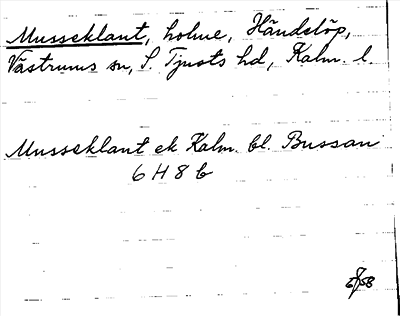 Musseklant, holme, Händelöp,
Västrums sn, S. Tjusts hd, Kalm. l.
Musseklant ek Kalm. bl. Bussan
6 H 8 b